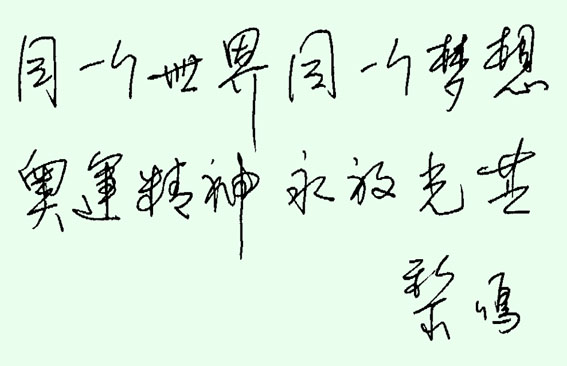 同一个世界 同一个梦想
奥運精神 永放光芒
黎鸣